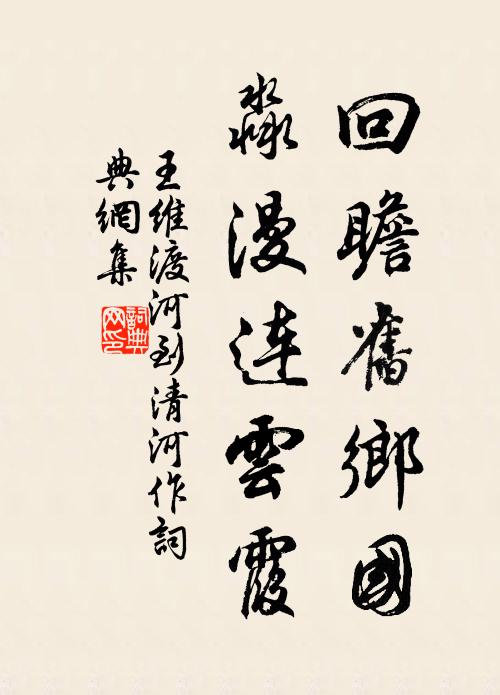 回瞻舊鄉國
淼漫連雲霞
王維渡河到清河作詞
典網集
詞典
网印